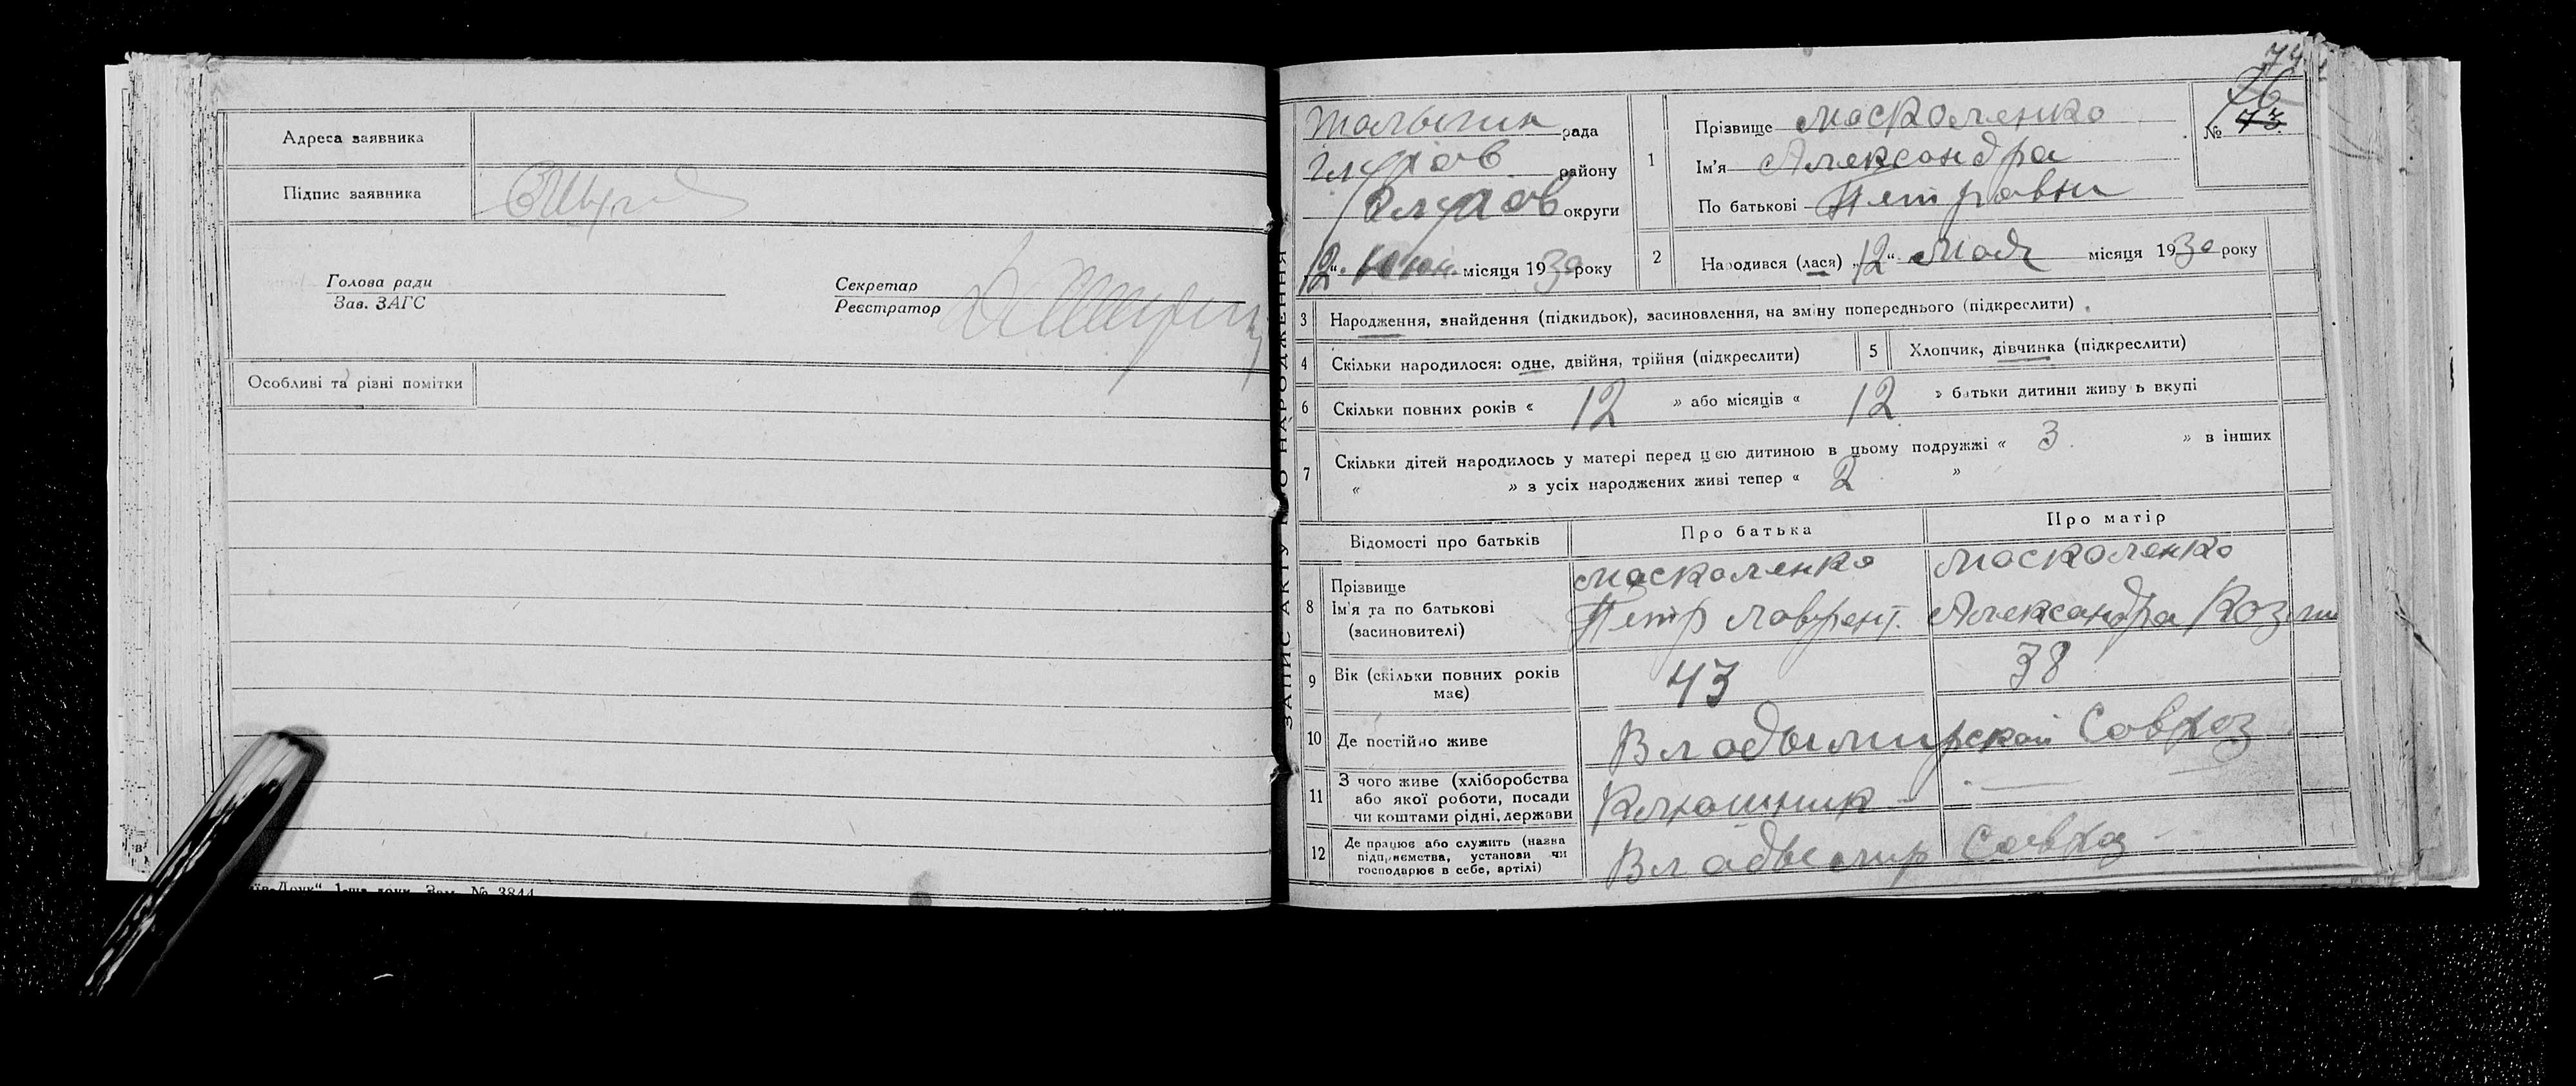 Адреса заявника
Підпис заявника
Голова ради
Зав. ЗАГС
Секретар
Реєстратор
Особливі та різні помітки
1-ша друк. Зам. № 3844
ЗАПИС АКТУ ПРО НАРОДЖЕННЯ
74
рада
Глухов району
Глухов округи
"12" місяця 1930 року
1
Прізвище Москоленко
Ім'я Александра
По батькові Петровна
№ 73
26
2
Народився (лася) "12" Моя місяця 1930 року
3 Народження, знайдення (підкидьок), засиновлення, на зміну попереднього (підкреслити)
4 Скільки народилося: одне, двійня, трійня (підкреслити)
5 Хлопчик, дівчинка (підкреслити)
6 Скільки повних років « 12 » або місяців « 12 » батьки дитини живуть вкупі
7 Скільки дітей народилось у матері перед цією дитиною в цьому подружжі « 3 » в інших
« » з усіх народжених живі тепер « 2 »
Відомості про батьків
Про батька
Про матір
8 Прізвище
Ім'я та по батькові
(засиновителі)
Москоленко
Петр Лаврент.
Москоленко
Александра Козми
9 Вік (скільки повних років має)
43
38
10 Де постійно живе
Владымирской Совхоз
11 З чого живе (хліборобства
або якої роботи, посади
чи коштами рідні, держави
Ключник —
12 Де працює або служить (назва
підприємства, установи чи
господарює в себе, артілі)
Владымир Совхоз